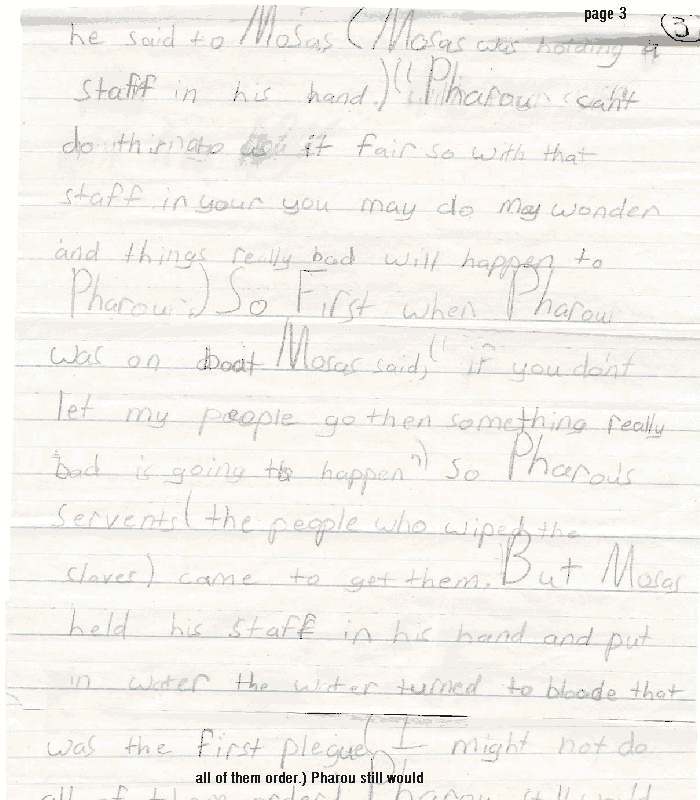 page 3
3
he said to Mosas (Mosas was holding a
staff in his hand.) "Pharou can't
do it fair so with that
staff in your you may do may wonder
and things really bad will happen to
Pharou.) So First when Pharou
was on boat Mosas said, "if you don't
let my people go then something really
bad is going to happen") so Pharou's
servents (the people who wiped the
slaves) came to get them. But Mosas
held his staff in his hand and put
in water the water turned to bloode that
was the first plegue. (I might not do
all of them order.) Pharou still would
all of them order.) Pharou still would